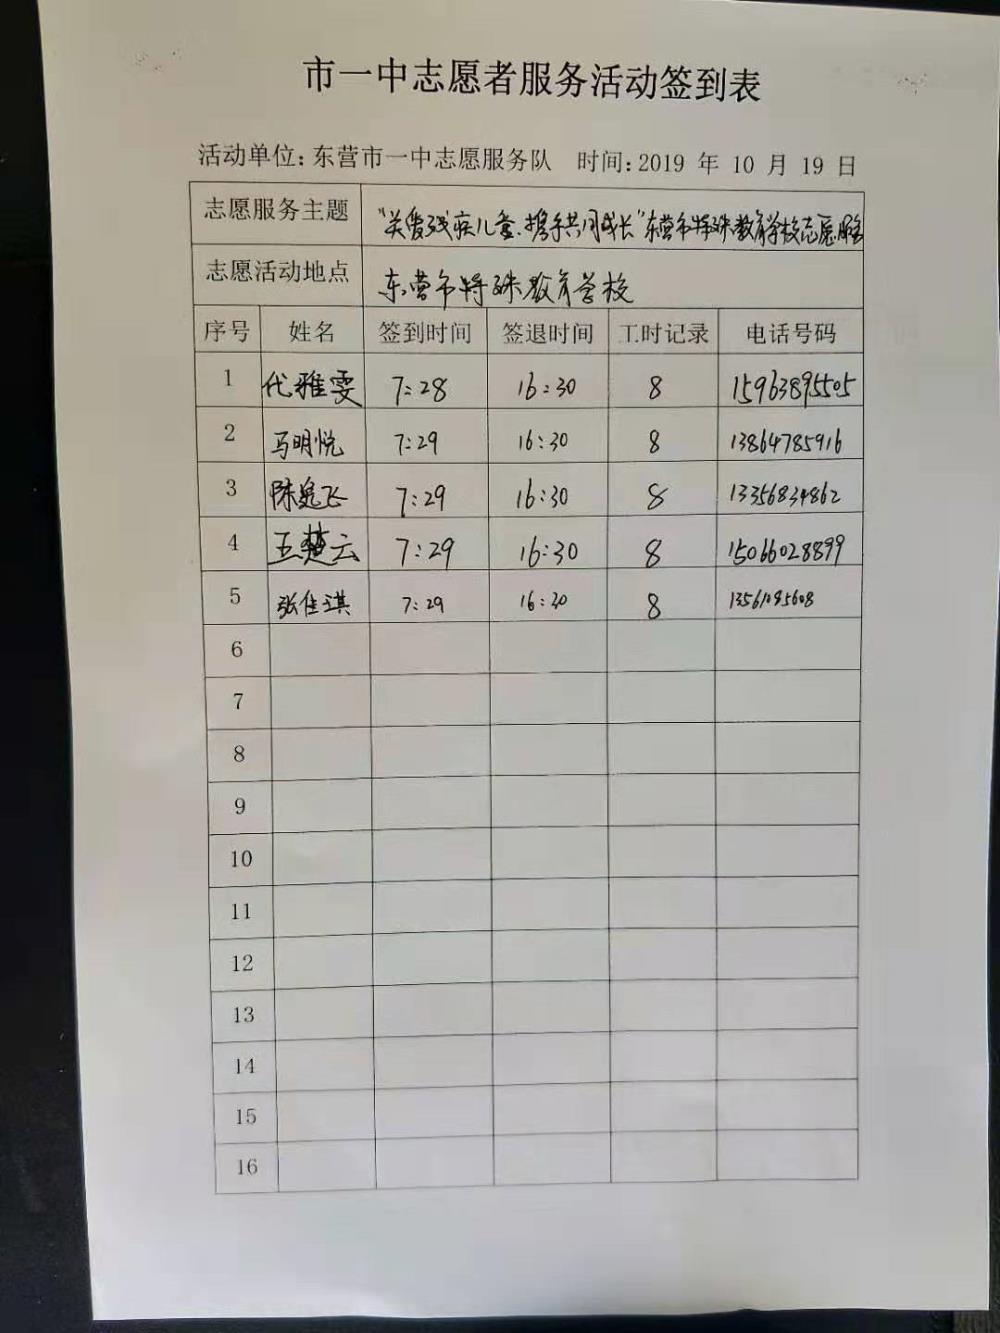 市一中志愿者服务活动签到表
活动单位:东营市一中志愿服务队 时间:2019 年 10 月 19 日
志愿服务主题 "关爱残疾儿童、携手共同成长"东营市特殊教育学校志愿服务
志愿活动地点 东营市特殊教育学校
序号 姓名 签到时间 签退时间 工时记录 电话号码
1 代雅雯 7:28 16:30 8 15963895505
2 马明悦 7:29 16:30 8 13864785916
3 陈 飞 7:29 16:30 8 13356834862
4 王楚云 7:29 16:30 8 15066028899
5 张佳琪 7:29 16:30 8 13561095608
6
7
8
9
10
11
12
13
14
15
16